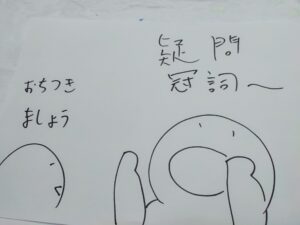 疑問
冠詞～
おちつき
ましょう